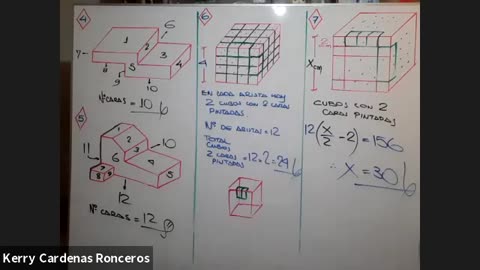 4
1
2
3
4
5
6
7
8
9
10
Nº CARAS = 10
5
1
2
3
4
5
6
10
11
12
Nº CARAS = 12
6
4
EN CADA ARISTA HAY
2 CUBOS CON 2 CARAS
PINTADAS
Nº DE ARISTAS = 12
TOTAL
CUBOS
2 CARAS = 12×2 = 24
PINTADAS
7
2cm
Xcm
CUBOS CON 2
CARAS PINTADAS
12(X/2 - 2) = 156
∴ X = 30
Kerry Cardenas Ronceros